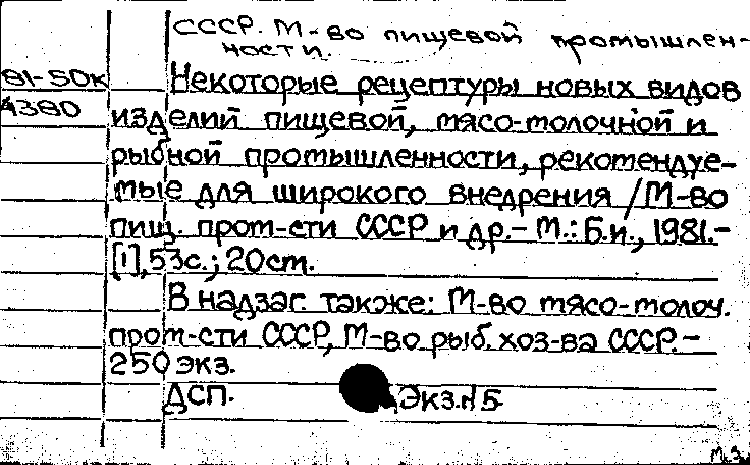 СССР. М-во пищевой промышлен-
ности.
81-50к
4380
Некоторые рецептуры новых видов
изделий пищевой, мясо-молочной и
рыбной промышленности, рекомендуе-
мые для широкого внедрения / М-во
пищ. пром-сти СССР и др. - М.: Б.и., 1981. -
[1], 53с.; 20см.
В надзаг. также: М-во мясо-молоч.
пром-сти СССР, М-во рыб. хоз-ва СССР. -
250 экз.
ДСП. Экз.N5